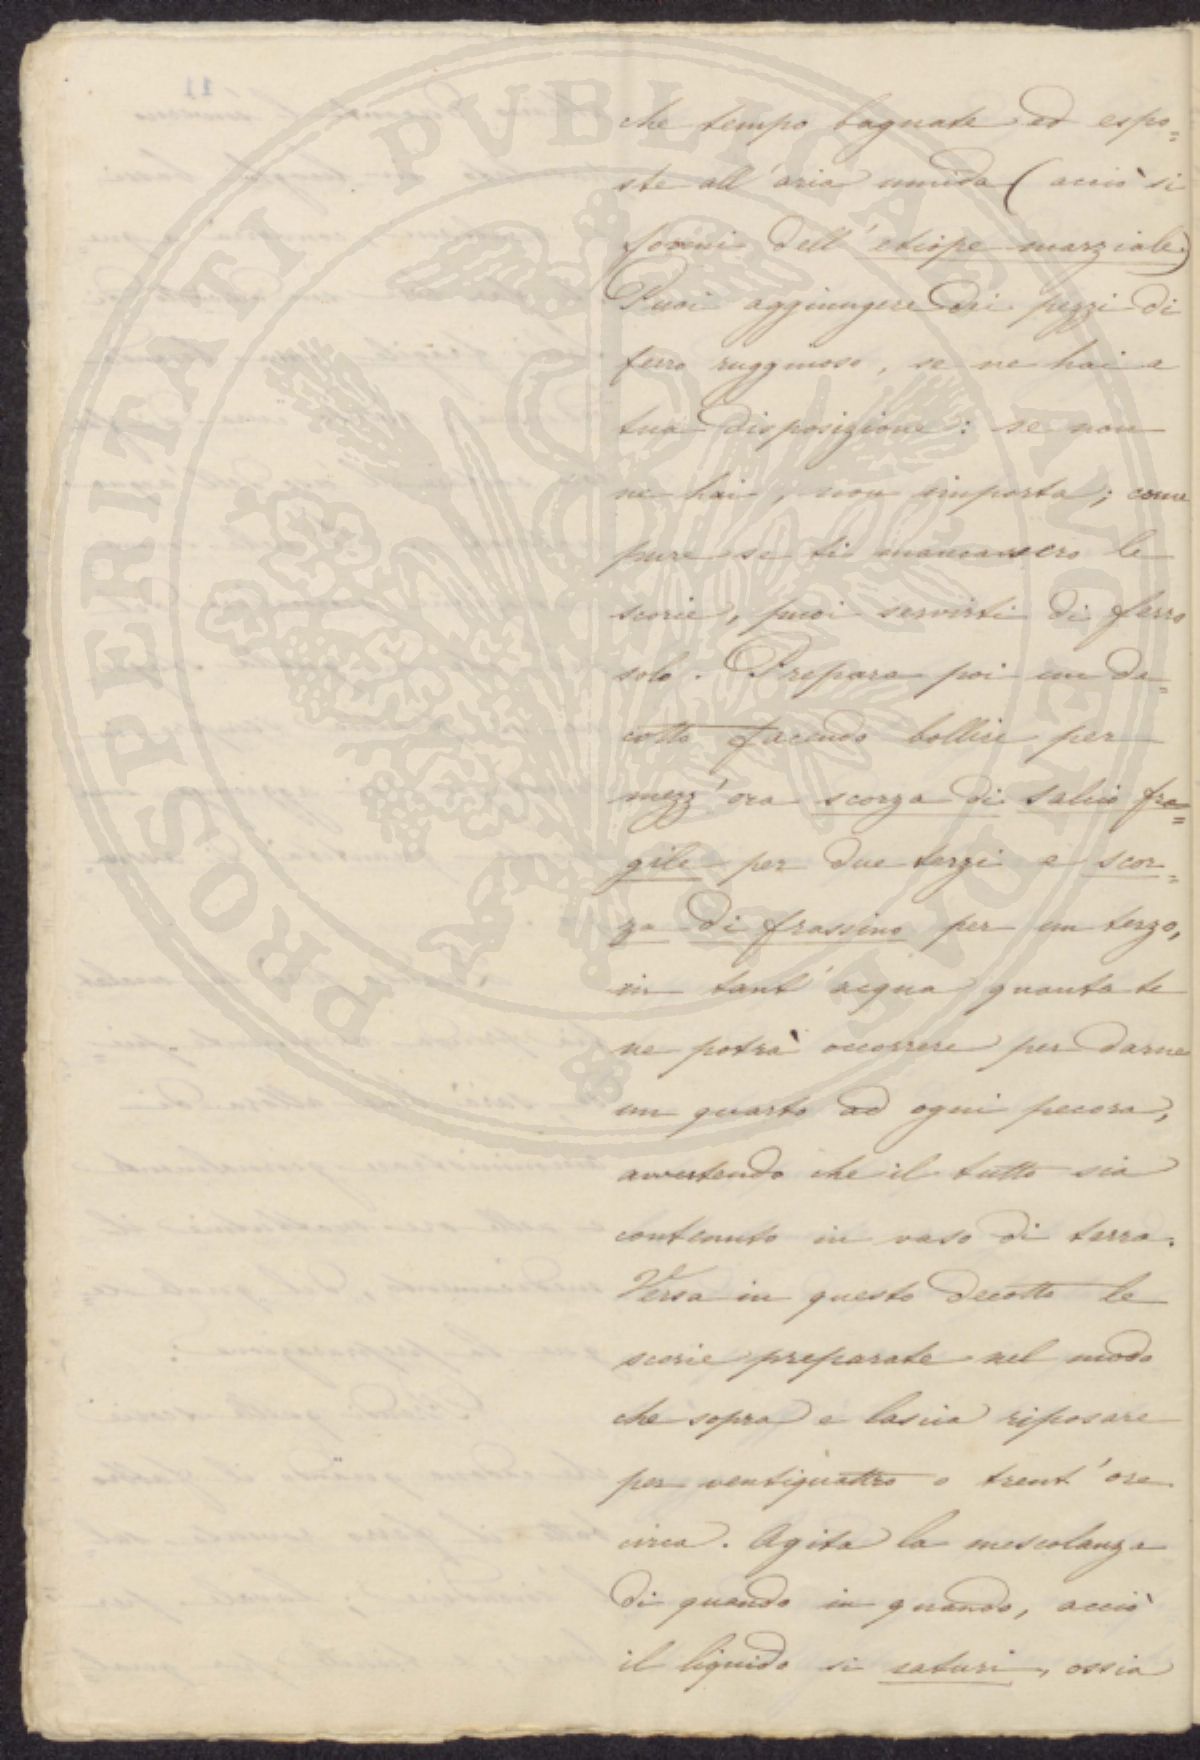 che tempo bagnate ed espo=
ste all'aria umida (acciò si
formi dell'etiope marziale)
Puoi aggiungere dei pezzi di
ferro rugginoso, se ne hai a
tua disposizione: se non
ne hai, non importa; come
pure se ti mancassero le
scorie, puoi servirti di ferro
solo. Prepara poi un de=
cotto facendo bollire per
mezz'ora scorza di salcio fra=
gile per due terzi e scor=
za di frassino per un terzo,
in tant'acqua quanta te
ne potrà occorrere per darne
un quarto ad ogni pecora,
avvertendo che il tutto sia
contenuto in vaso di terra.
Versa in questo decotto le
scorie preparate nel modo
che sopra e lascia riposare
per ventiquattro o trent'ore
circa. Agita la mescolanza
di quando in quando, acciò
il liquido si saturi, ossia
PROSPERITATI PUBLICAE AUGENDAE